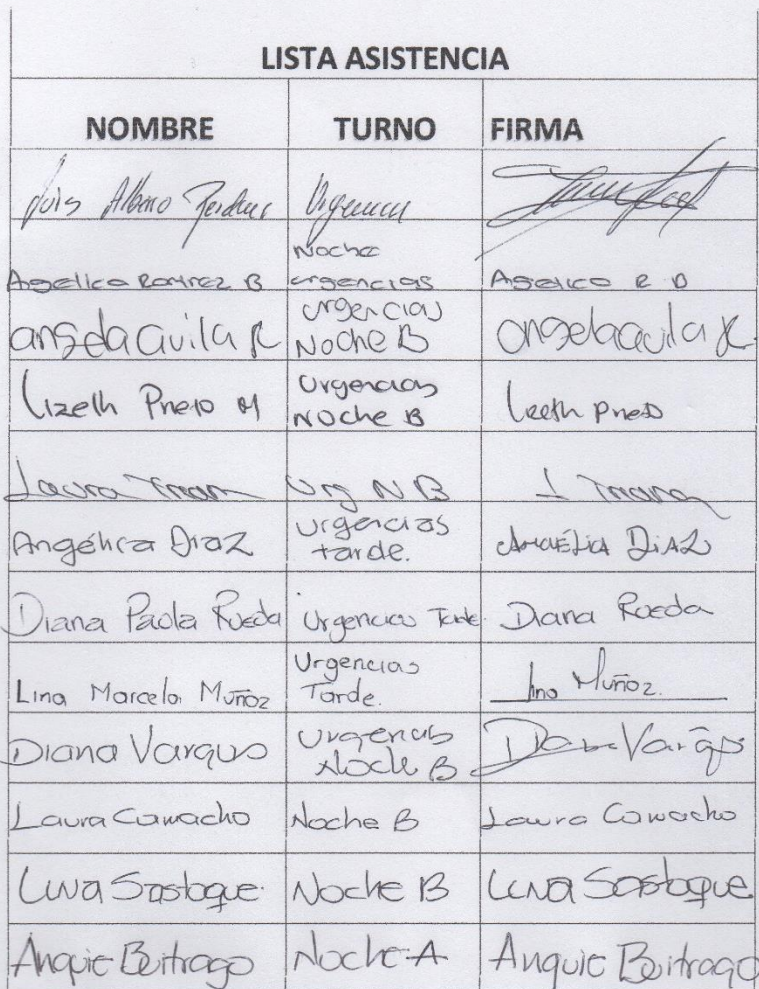 LISTA ASISTENCIA
NOMBRE TURNO FIRMA
Luis Alberto
Noche
Angelica Ramirez B urgencias Angelica R B
angela avila R urgencias Noche B angela avila R
Lizeth Prieto M Urgencias Noche B Lizeth Prieto
Laura Triana Urg N B L Triana
Angélica Diaz urgencias tarde. ANGÉLICA DIAZ
Diana Paola Rueda Urgencias Tarde Diana Rueda
Lina Marcela Muñoz Urgencias Tarde. Lina Muñoz.
Diana Vargas Urgencias Noche B Diana Vargas
Laura Camacho Noche B Laura Camacho
Luna Sastoque Noche B Luna Sastoque
Anguie Buitrago Noche A Anguie Buitrago